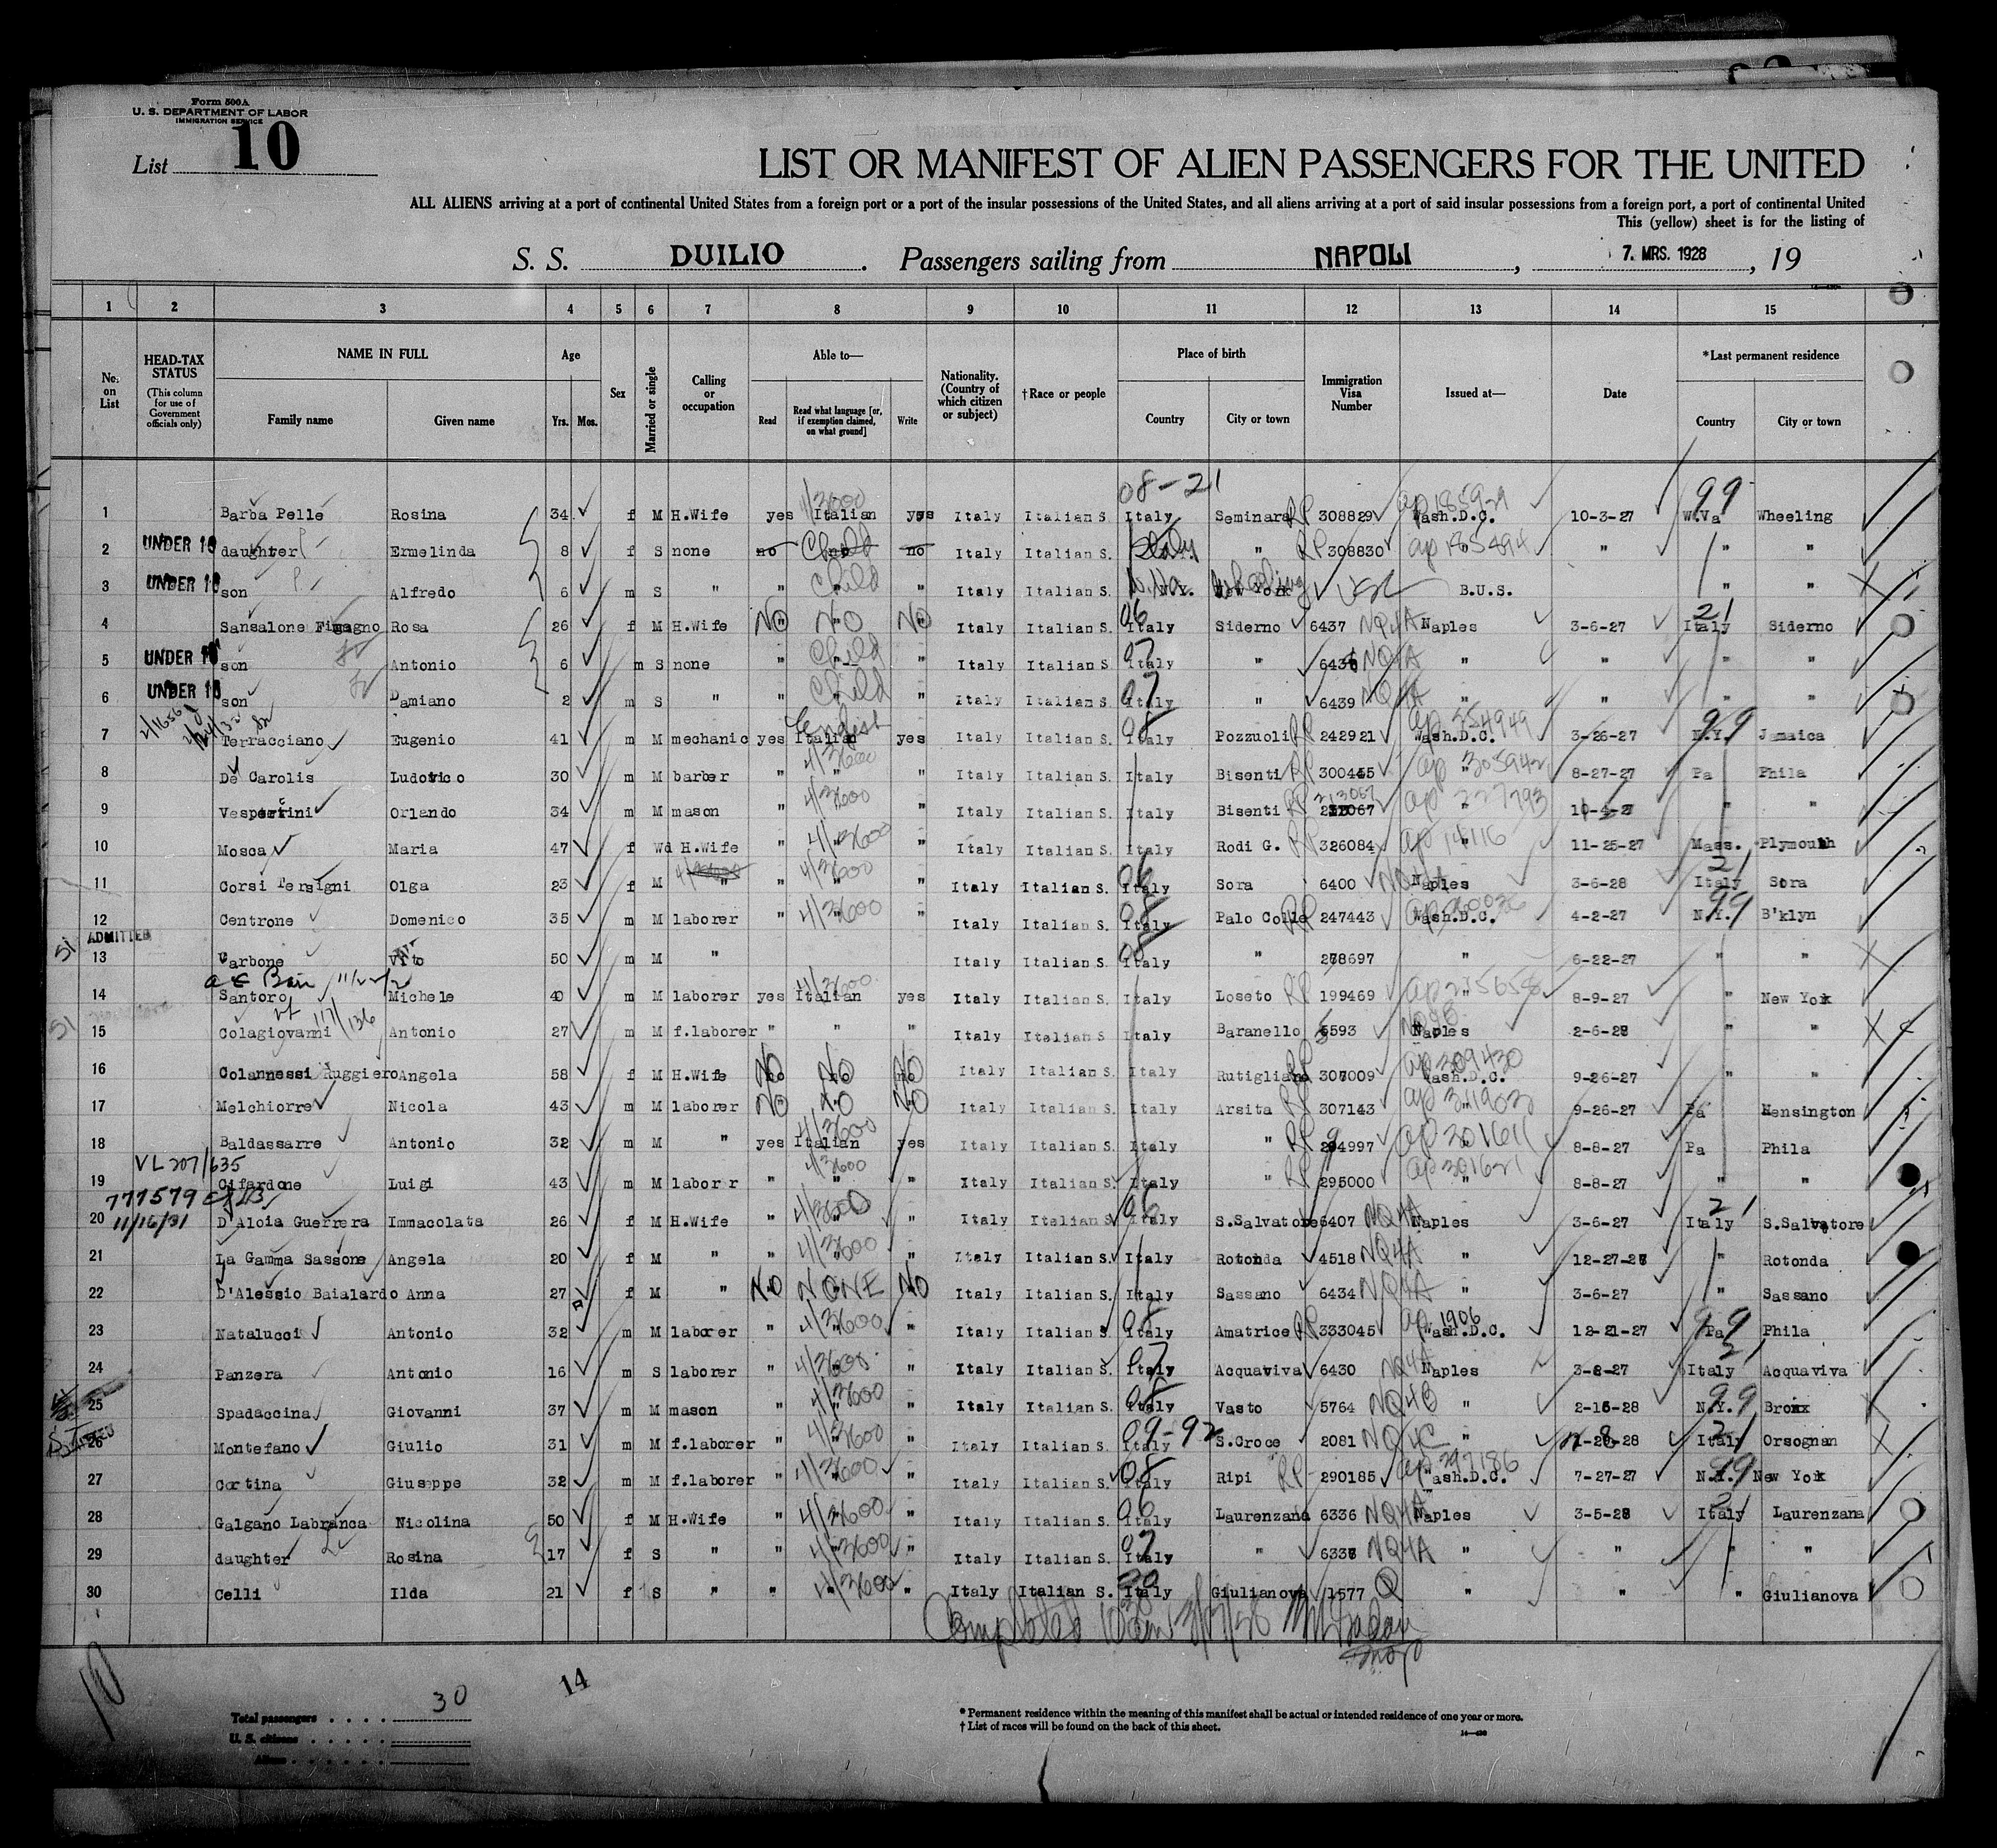 Form 500A
U. S. DEPARTMENT OF LABOR
IMMIGRATION SERVICE
List 10
LIST OR MANIFEST OF ALIEN PASSENGERS FOR THE UNITED
ALL ALIENS arriving at a port of continental United States from a foreign port or a port of the insular possessions of the United States, and all aliens arriving at a port of said insular possessions from a foreign port, a port of continental United
This (yellow) sheet is for the listing of
S. S. DUILIO. Passengers sailing from NAPOLI, 7. MRS. 1928, 19
1 2 3 4 5 6 7 8 9 10 11 12 13 14 15
No. on List
HEAD-TAX STATUS (This column for use of Government officials only)
NAME IN FULL
Family name Given name
Age
Yrs. Mos.
Sex
Married or single
Calling or occupation
Able to—
Read Read what language [or, if exemption claimed, on what ground] Write
Nationality. (Country of which citizen or subject)
†Race or people
Place of birth
Country City or town
Immigration Visa Number
Issued at—
Date
*Last permanent residence
Country City or town
08-21 99
1 Barba Pelle Rosina 34 f M H.Wife yes Italian yes Italy Italian S. Italy Seminara RP 308829 Wash.D.C. 10-3-27 W.Va Wheeling
2 UNDER 16 daughter Ermelinda 8 f S none no Child no Italy Italian S. Italy " RP 308830 ap 185894 " " "
3 UNDER 16 son Alfredo 6 m S " " Child " Italy Italian S. W.Va. Wheeling New York USC B.U.S. " "
4 Sansalone Rosa 26 f M H.Wife No No No Italy Italian S. 06 Italy Siderno 6437 NQ4A Naples 3-6-27 21 Italy Siderno
5 UNDER 16 son Antonio 6 m S none " Child " Italy Italian S. 07 Italy " 6438 NQ4A " " " "
6 UNDER 16 son Damiano 2 m S " " Child " Italy Italian S. 07 Italy " 6439 NQ4A " " " "
7 Terracciano Eugenio 41 m M mechanic yes English Italian yes Italy Italian S. 08 Italy Pozzuoli RP 242921 Wash.D.C. 3-26-27 99 N.Y. Jamaica
8 De Carolis Ludovico 30 m M barber " 4/3600 " Italy Italian S. Italy Bisenti RP 300455 ap 305942 8-27-27 Pa Phila
9 Vespertini Orlando 34 m M mason " 4/3600 " Italy Italian S. Italy Bisenti RP 213067 ap 227793 10-4-2 " "
10 Mosca Maria 47 f Wd H.Wife " 4/3600 " Italy Italian S. Italy Rodi G. RP 326084 ap 14116 11-25-27 Mass. Plymouth
11 Corsi Tersigni Olga 23 f M " " 4/3600 " Italy Italian S. 06 Italy Sora 6400 Naples 3-6-28 21 Italy Sora
12 Centrone Domenico 35 m M laborer " 4/3600 " Italy Italian S. 08 Italy Palo Colle RP 247443 Wash.D.C. 4-2-27 99 N.Y. B'klyn
ADMITTED
51 13 Carbone Vito 50 m M " Italy Italian S. 08 Italy " 278697 " 6-22-27 " "
14 Santoro Michele 40 m M laborer yes Italian 4/3600 yes Italy Italian S. Italy Loseto RP 199469 ap 275658 8-9-27 " New York
117/136
51 15 Colagiovanni Antonio 27 m M f.laborer " " " Italy Italian S Italy Baranello 5593 Naples 2-6-28 " "
16 Colannessi Ruggiero Angela 58 f M H.Wife No No No Italy Italian S. Italy Rutigliano RP 307009 ap 309430 Wash.D.C. 9-26-27 " "
17 Melchiorre Nicola 43 m M laborer No No No Italy Italian S. Italy Arsita RP 307143 ap 311903 " 9-26-27 Pa Kensington
18 Baldassarre Antonio 32 m M " yes Italian 4/3600 yes Italy Italian S. Italy " RP 294997 ap 301611 8-8-27 Pa Phila
VL 207/635
19 Cifardone Luigi 43 m M labor r " 4/3600 " Italy Italian S. Italy " RP 295000 ap 301621 " 8-8-27 " "
777579
11/16/31
20 D'Aloia Guerrera Immacolata 26 f M H.Wife " 4/3600 " Italy Italian S. 06 Italy S.Salvatore 6407 NQ4A Naples 3-6-27 21 Italy S.Salvatore
21 La Gamma Sassone Angela 20 f M " " 4/3600 " Italy Italian S. Italy Rotonda 4518 NQ4A " 12-27-27 " Rotonda
22 D'Alessio Baialardo Anna 27 f M " No NONE No Italy Italian S. Italy Sassano 6434 NQ4A " 3-6-27 " Sassano
23 Natalucci Antonio 32 m M laborer " 4/3600 " Italy Italian S. 08 Italy Amatrice RP 333045 ap 1906 Wash.D.C. 12-21-27 99 Pa Phila
24 Panzera Antonio 16 m S laborer " 4/3600 " Italy Italian S. 07 Italy Acquaviva 6430 NQ4A Naples 3-8-27 21 Italy Acquaviva
25 Spadaccina Giovanni 37 m M mason " 4/3600 " Italy Italian S. 08 Italy Vasto 5764 NQ4B " 2-15-28 99 N.Y. Bronx
26 Montefano Giulio 31 m M f.laborer " 4/3600 " Italy Italian S. 09-92 Italy S.Croce 2081 NQ4C " -28-28 21 Italy Orsognan
27 Cortina Giuseppe 32 m M f.laborer " 4/3600 " Italy Italian S. 08 Italy Ripi RP 290185 ap 297186 Wash.D.C. 7-27-27 99 N.Y. New York
28 Galgano Labranca Nicolina 50 f M H.Wife " 4/3600 " Italy Italian S. 06 Italy Laurenzana 6336 NQ4A Naples 3-5-28 21 Italy Laurenzana
29 daughter Rosina 17 f S " " 4/3600 " Italy Italian S. 07 Italy " 6338 NQ4A " " " "
30 Celli Ilda 21 f S " " 4/3600 " Italy Italian S. Italy Giulianova 1577 Q " " " Giulianova
Completed
10 14
Total passengers . . . . 30
U. S. citizens . . . . .
Aliens . . . . . .
* Permanent residence within the meaning of this manifest shall be actual or intended residence of one year or more.
† List of races will be found on the back of this sheet.